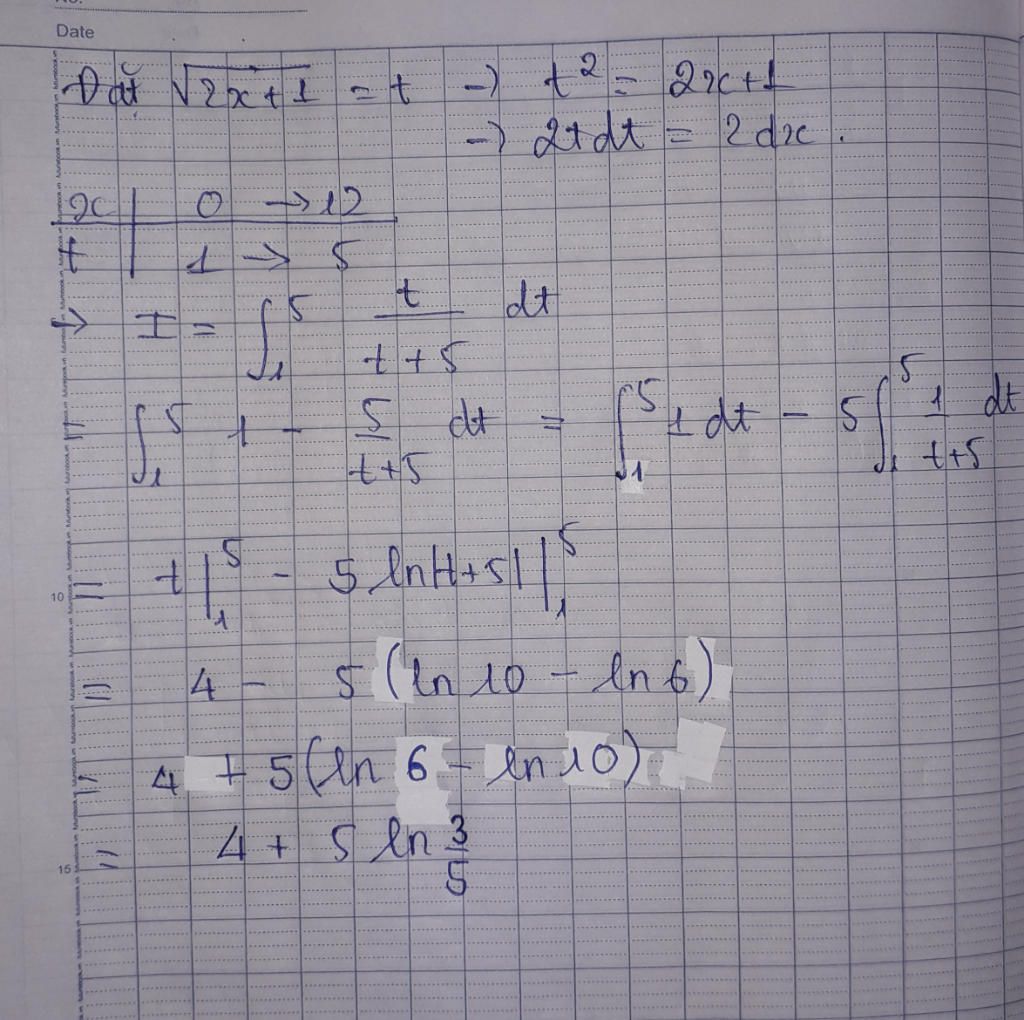 No.
Date
Đặt √(2x+1) = t → t² = 2x+1
→ 2tdt = 2dx.
x | 0 → 12
t | 1 → 5
→ I = ∫₁⁵ t/(t+5) dt
= ∫₁⁵ 1 - 5/(t+5) dt = ∫₁⁵ 1 dt - 5∫₁⁵ 1/(t+5) dt
10
= t|₁⁵ - 5 ln|t+5| |₁⁵
= 4 - 5 (ln 10 - ln 6)
= 4 + 5(ln 6 - ln 10)
15
= 4 + 5 ln 3/5